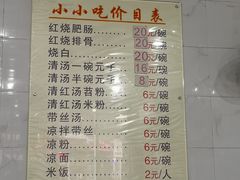 小小吃价目表
红烧肥肠......20元/碗
红烧排骨......20元/碗
烧白............20元/碗
清汤一碗元子...16元/碗
清汤半碗元子...8元/碗
清红汤苕粉......6元/碗
清红汤米粉......6元/碗
带丝汤............6元/碗
凉拌带丝.........6元/碗
凉粉...............6元/碗
凉面...............6元/碗
米饭...............2元/人